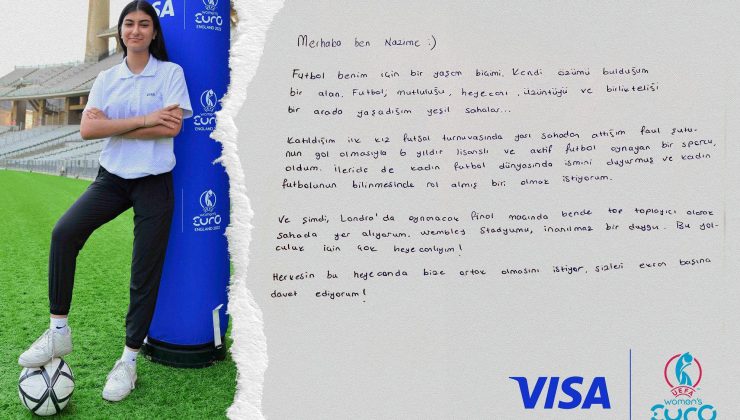 VISA
UEFA
women's
EURO
ENGLAND 2022
UEFA
women's
EURO
ENGLAND 2022
women's
EURO
ENGLAND 2022
Merhaba ben Nazime :)
Futbol benim için bir yaşam biçimi. Kendi özümü bulduğum
bir alan. Futbol, mutluluğu, heyecanı, üzüntüyü ve birlikteliği
bir arada yaşadığım yeşil sahalar...
Katıldığım ilk kız futsal turnuvasında yarı sahadan attığım faul şutu-
nun gol olmasıyla 6 yıldır lisanslı ve aktif futbol oynayan bir sporcu
oldum. İleride de kadın futbol dünyasında ismini duyurmuş ve kadın
futbolunun bilinmesinde rol almış biri olmak istiyorum.
Ve şimdi, Londra'da oynanacak final maçında bende top toplayıcı olarak
sahada yer alıyorum. Wembley Stadyumu, inanılmaz bir duygu. Bu yol-
culuk için çok heyecanlıyım!
Herkesin bu heyecanda bize ortak olmasını istiyor, sizleri ekran başına
davet ediyorum!
VISA
UEFA
women's
EURO